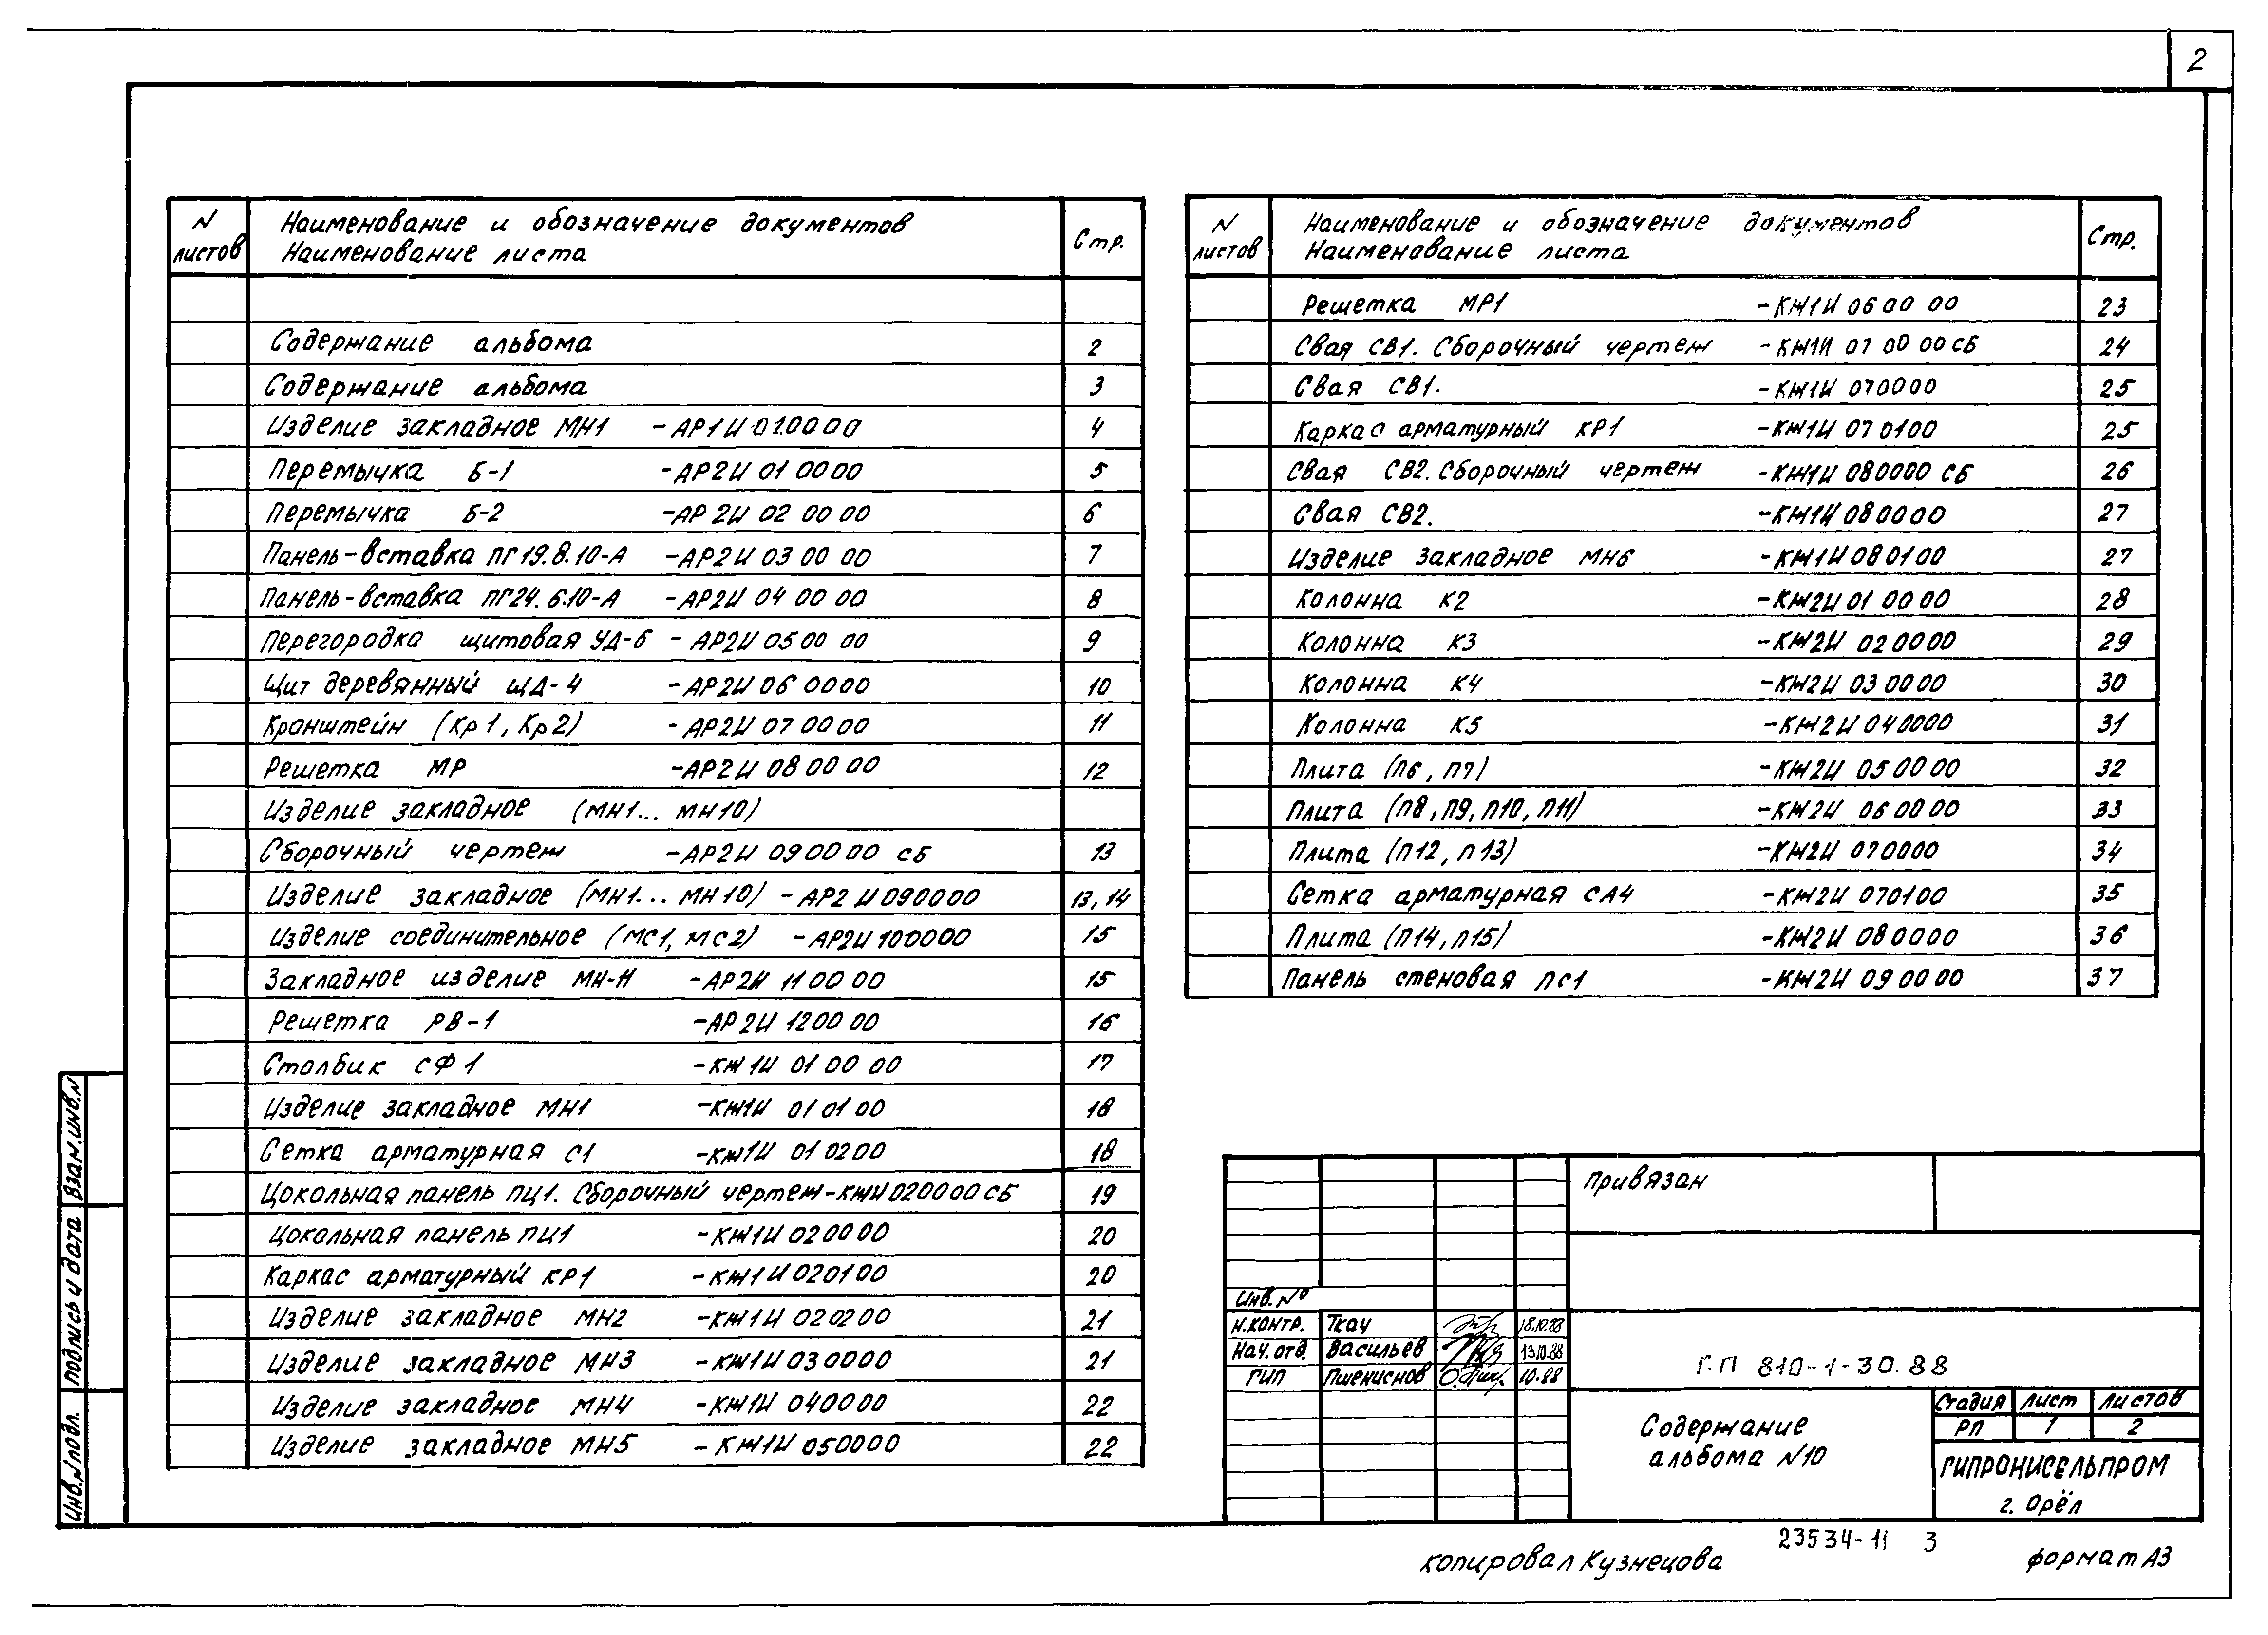 2
N листов Наименование и обозначение документов Стр.
Наименование листа
Содержание альбома 2
Содержание альбома 3
Изделие закладное МН1 -АР1И 01.00 00 4
Перемычка Б-1 -АР2И 01 00 00 5
Перемычка Б-2 -АР2И 02 00 00 6
Панель-вставка ПГ19.8.10-А -АР2И 03 00 00 7
Панель-вставка ПГ24.6.10-А -АР2И 04 00 00 8
Перегородка щитовая УД-6 - АР2И 05 00 00 9
Щит деревянный ЩД-4 -АР2И 06 0000 10
Кронштейн (Кр1, Кр2) - АР2И 07 00 00 11
Решетка МР -АР2И 08 00 00 12
Изделие закладное (МН1... МН10)
Сборочный чертеж -АР2И 09 00 00 СБ 13
Изделие закладное (МН1... МН10) - АР2И 090000 13, 14
Изделие соединительное (МС1, МС2) -АР2И 100000 15
Закладное изделие МН-Н -АР2И 11 00 00 15
Решетка РВ-1 -АР2И 1200 00 16
Столбик СФ1 -КЖ1И 01 00 00 17
Изделие закладное МН1 -КЖ1И 01 01 00 18
Сетка арматурная С1 -КЖ1И 01 02 00 18
Цокольная панель ПЦ1. Сборочный чертеж-КЖИ 020000 СБ 19
Цокольная панель ПЦ1 -КЖ1И 020000 20
Каркас арматурный КР1 -КЖ1И 020100 20
Изделие закладное МН2 -КЖ1И 020200 21
Изделие закладное МН3 -КЖ1И 030000 21
Изделие закладное МН4 -КЖ1И 040000 22
Изделие закладное МН5 - КЖ1И 050000 22
N листов Наименование и обозначение документов Стр.
Наименование листа
Решетка МР1 -КЖ1И 06 00 00 23
Свая СВ1. Сборочный чертеж -КЖ1И 07 00 00 СБ 24
Свая СВ1. -КЖ1И 070000 25
Каркас арматурный КР1 -КЖ1И 07 0100 25
Свая СВ2. Сборочный чертеж -КЖ1И 080000 СБ 26
Свая СВ2. -КЖ1И 080000 27
Изделие закладное МН6 -КЖ1И 080100 27
Колонна К2 -КЖ2И 01 00 00 28
Колонна К3 -КЖ2И 02 0000 29
Колонна К4 -КЖ2И 03 0000 30
Колонна К5 -КЖ2И 040000 31
Плита (П6, П7) -КЖ2И 05 00 00 32
Плита (П8, П9, П10, П11) -КЖ2И 06 00 00 33
Плита (П12, П13) -КЖ2И 070000 34
Сетка арматурная СА4 -КЖ2И 070100 35
Плита (П14, П15) -КЖ2И 080000 36
Панель стеновая ПС1 -КЖ2И 09 00 00 37
Взам.инв.N
Подпись и дата
Инв.N подл.
Привязан
Инв. №
Н.контр. Ткач 18.10.88
Нач.отд. Васильев 13.10.88
ГИП Пшениснов 10.88
Т.П 810-1-30.88
Содержание
альбома N10
Стадия Лист Листов
РП 1 2
ГИПРОНИСЕЛЬПРОМ
г. Орёл
23534-11 3
копировал Кузнецова
формат А3